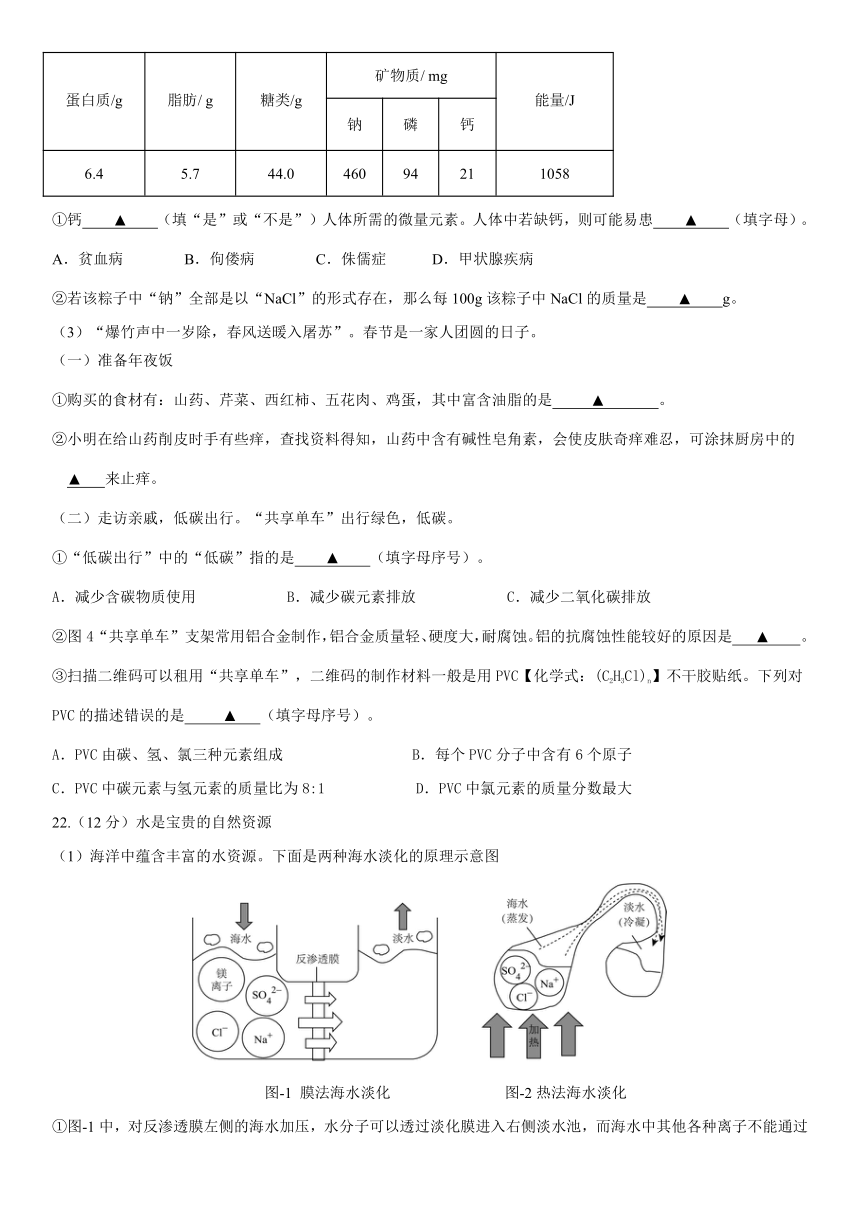 蛋白质/g 脂肪/ g 糖类/g 矿物质/ mg 能量/J
钠 磷 钙
6.4 5.7 44.0 460 94 21 1058
①钙 ▲ (填“是”或“不是”)人体所需的微量元素。人体中若缺钙，则可能易患 ▲ (填字母)。
A．贫血病 B．佝偻病 C．侏儒症 D．甲状腺疾病
②若该粽子中“钠”全部是以“NaCl”的形式存在，那么每100g该粽子中NaCl的质量是 ▲ g。
（3）“爆竹声中一岁除，春风送暖入屠苏”。春节是一家人团圆的日子。
（一）准备年夜饭
①购买的食材有：山药、芹菜、西红柿、五花肉、鸡蛋，其中富含油脂的是 ▲ 。
②小明在给山药削皮时手有些痒，查找资料得知，山药中含有碱性皂角素，会使皮肤奇痒难忍，可涂抹厨房中的
▲ 来止痒。
（二）走访亲戚，低碳出行。“共享单车”出行绿色，低碳。
①“低碳出行”中的“低碳”指的是 ▲ （填字母序号）。
A．减少含碳物质使用 B．减少碳元素排放 C．减少二氧化碳排放
②图4“共享单车”支架常用铝合金制作，铝合金质量轻、硬度大，耐腐蚀。铝的抗腐蚀性能较好的原因是 ▲ 。
③扫描二维码可以租用“共享单车”，二维码的制作材料一般是用PVC【化学式：(C₂H₃Cl)ₙ】不干胶贴纸。下列对
PVC的描述错误的是 ▲ （填字母序号）。
A．PVC由碳、氢、氯三种元素组成 B．每个PVC分子中含有6个原子
C．PVC中碳元素与氢元素的质量比为8:1 D．PVC中氯元素的质量分数最大
22.（12分）水是宝贵的自然资源
（1）海洋中蕴含丰富的水资源。下面是两种海水淡化的原理示意图
海水 淡水
反渗透膜
镁离子 SO₄²⁻
Cl⁻ Na⁺
海水（蒸发） 淡水（冷凝）
SO₄²⁻ Na⁺ Cl⁻
加热
图-1 膜法海水淡化 图-2热法海水淡化
①图-1中，对反渗透膜左侧的海水加压，水分子可以透过淡化膜进入右侧淡水池，而海水中其他各种离子不能通过